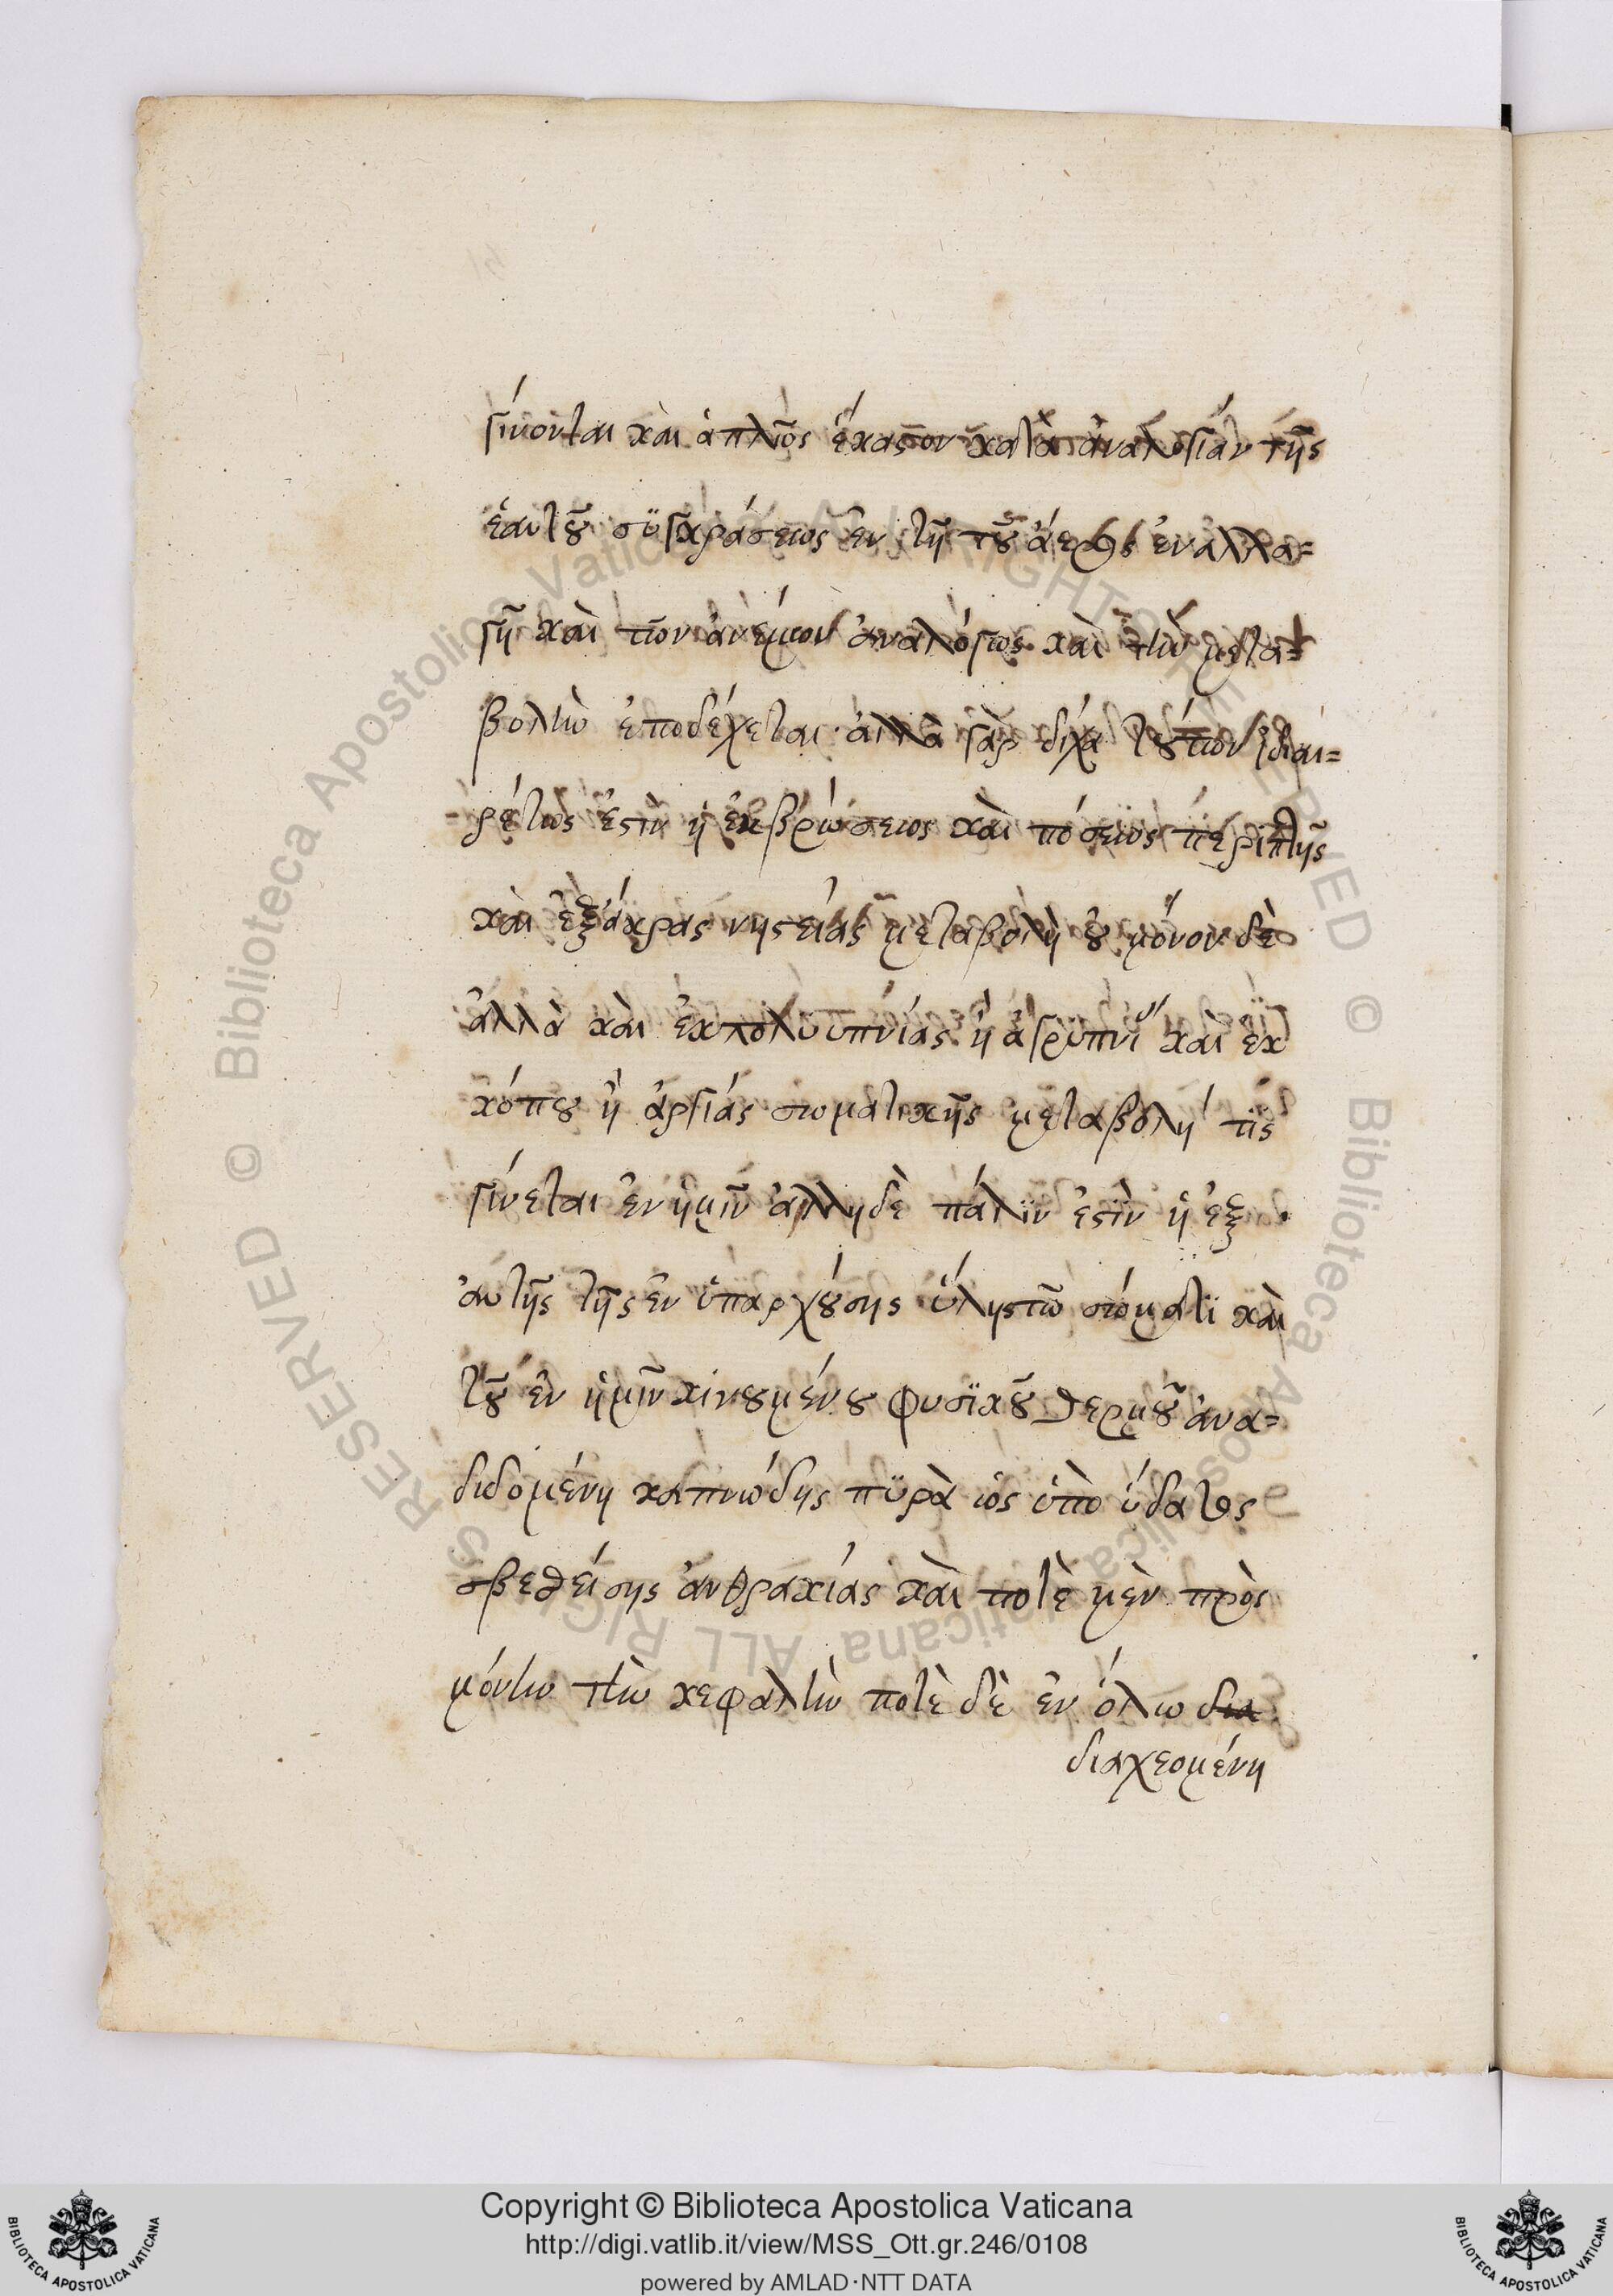 γίνονται καὶ ἁπλῶς ἕκαστον κατὰ ἀναλογίαν τῆς
ἑαυτοῦ συγκράσεως ἐν τῇ τοῦ ἀέρος ἐναλλα=
γῇ καὶ τῶν ἀνέμων ἀναλόγως καὶ τὴν μετα=
βολὴν ἐποδέχεται· ἀλλὰ γὰρ δίχα τούτων ἰδιαι=
ρέτως ἐστὶν ἡ ἐκ βρώσεως καὶ πόσεως περιττῆς
καὶ ἐξ ἄκρας νηστείας μεταβολὴ οὐ μόνον δὲ
ἀλλὰ καὶ ἐκ πολυυπνίας ἢ ἀγρυπνί καὶ ἐκ
κόπου ἢ ἀργιάς σωματικῆς μεταβολή τις
γίνεται ἐν ἡμῖν ἄλλη δὲ πάλϊν ἐστὶν ἡ ἐξ
αὐτῆς τῆς ἐν ὑπαρχούσης ὕλης τῶ σώματϊ καὶ
τοῦ ἐν ἡμῖν κινουμένου φυσϊκοῦ θερμοῦ ἀνα=
διδομένη καπνώδης πϋρὰ ὡς ὑπὸ ὕδατος
σβεθείσης ἀνθρακίας καὶ ποτὲ μὲν πρὸς
μόνην τὴν κεφαλὴν ποτὲ δὲ ἐν ὅλω δια
διαχεομένη
Copyright © Biblioteca Apostolica Vaticana
http://digi.vatlib.it/view/MSS_Ott.gr.246/0108
powered by AMLAD·NTT DATA
BIBLIOTECA APOSTOLICA VATICANA
BIBLIOTECA APOSTOLICA VATICANA
© Biblioteca Apostolica Vaticana ALL RIGHTS RESERVED
© Biblioteca Apostolica Vaticana ALL RIGHTS RESERVED